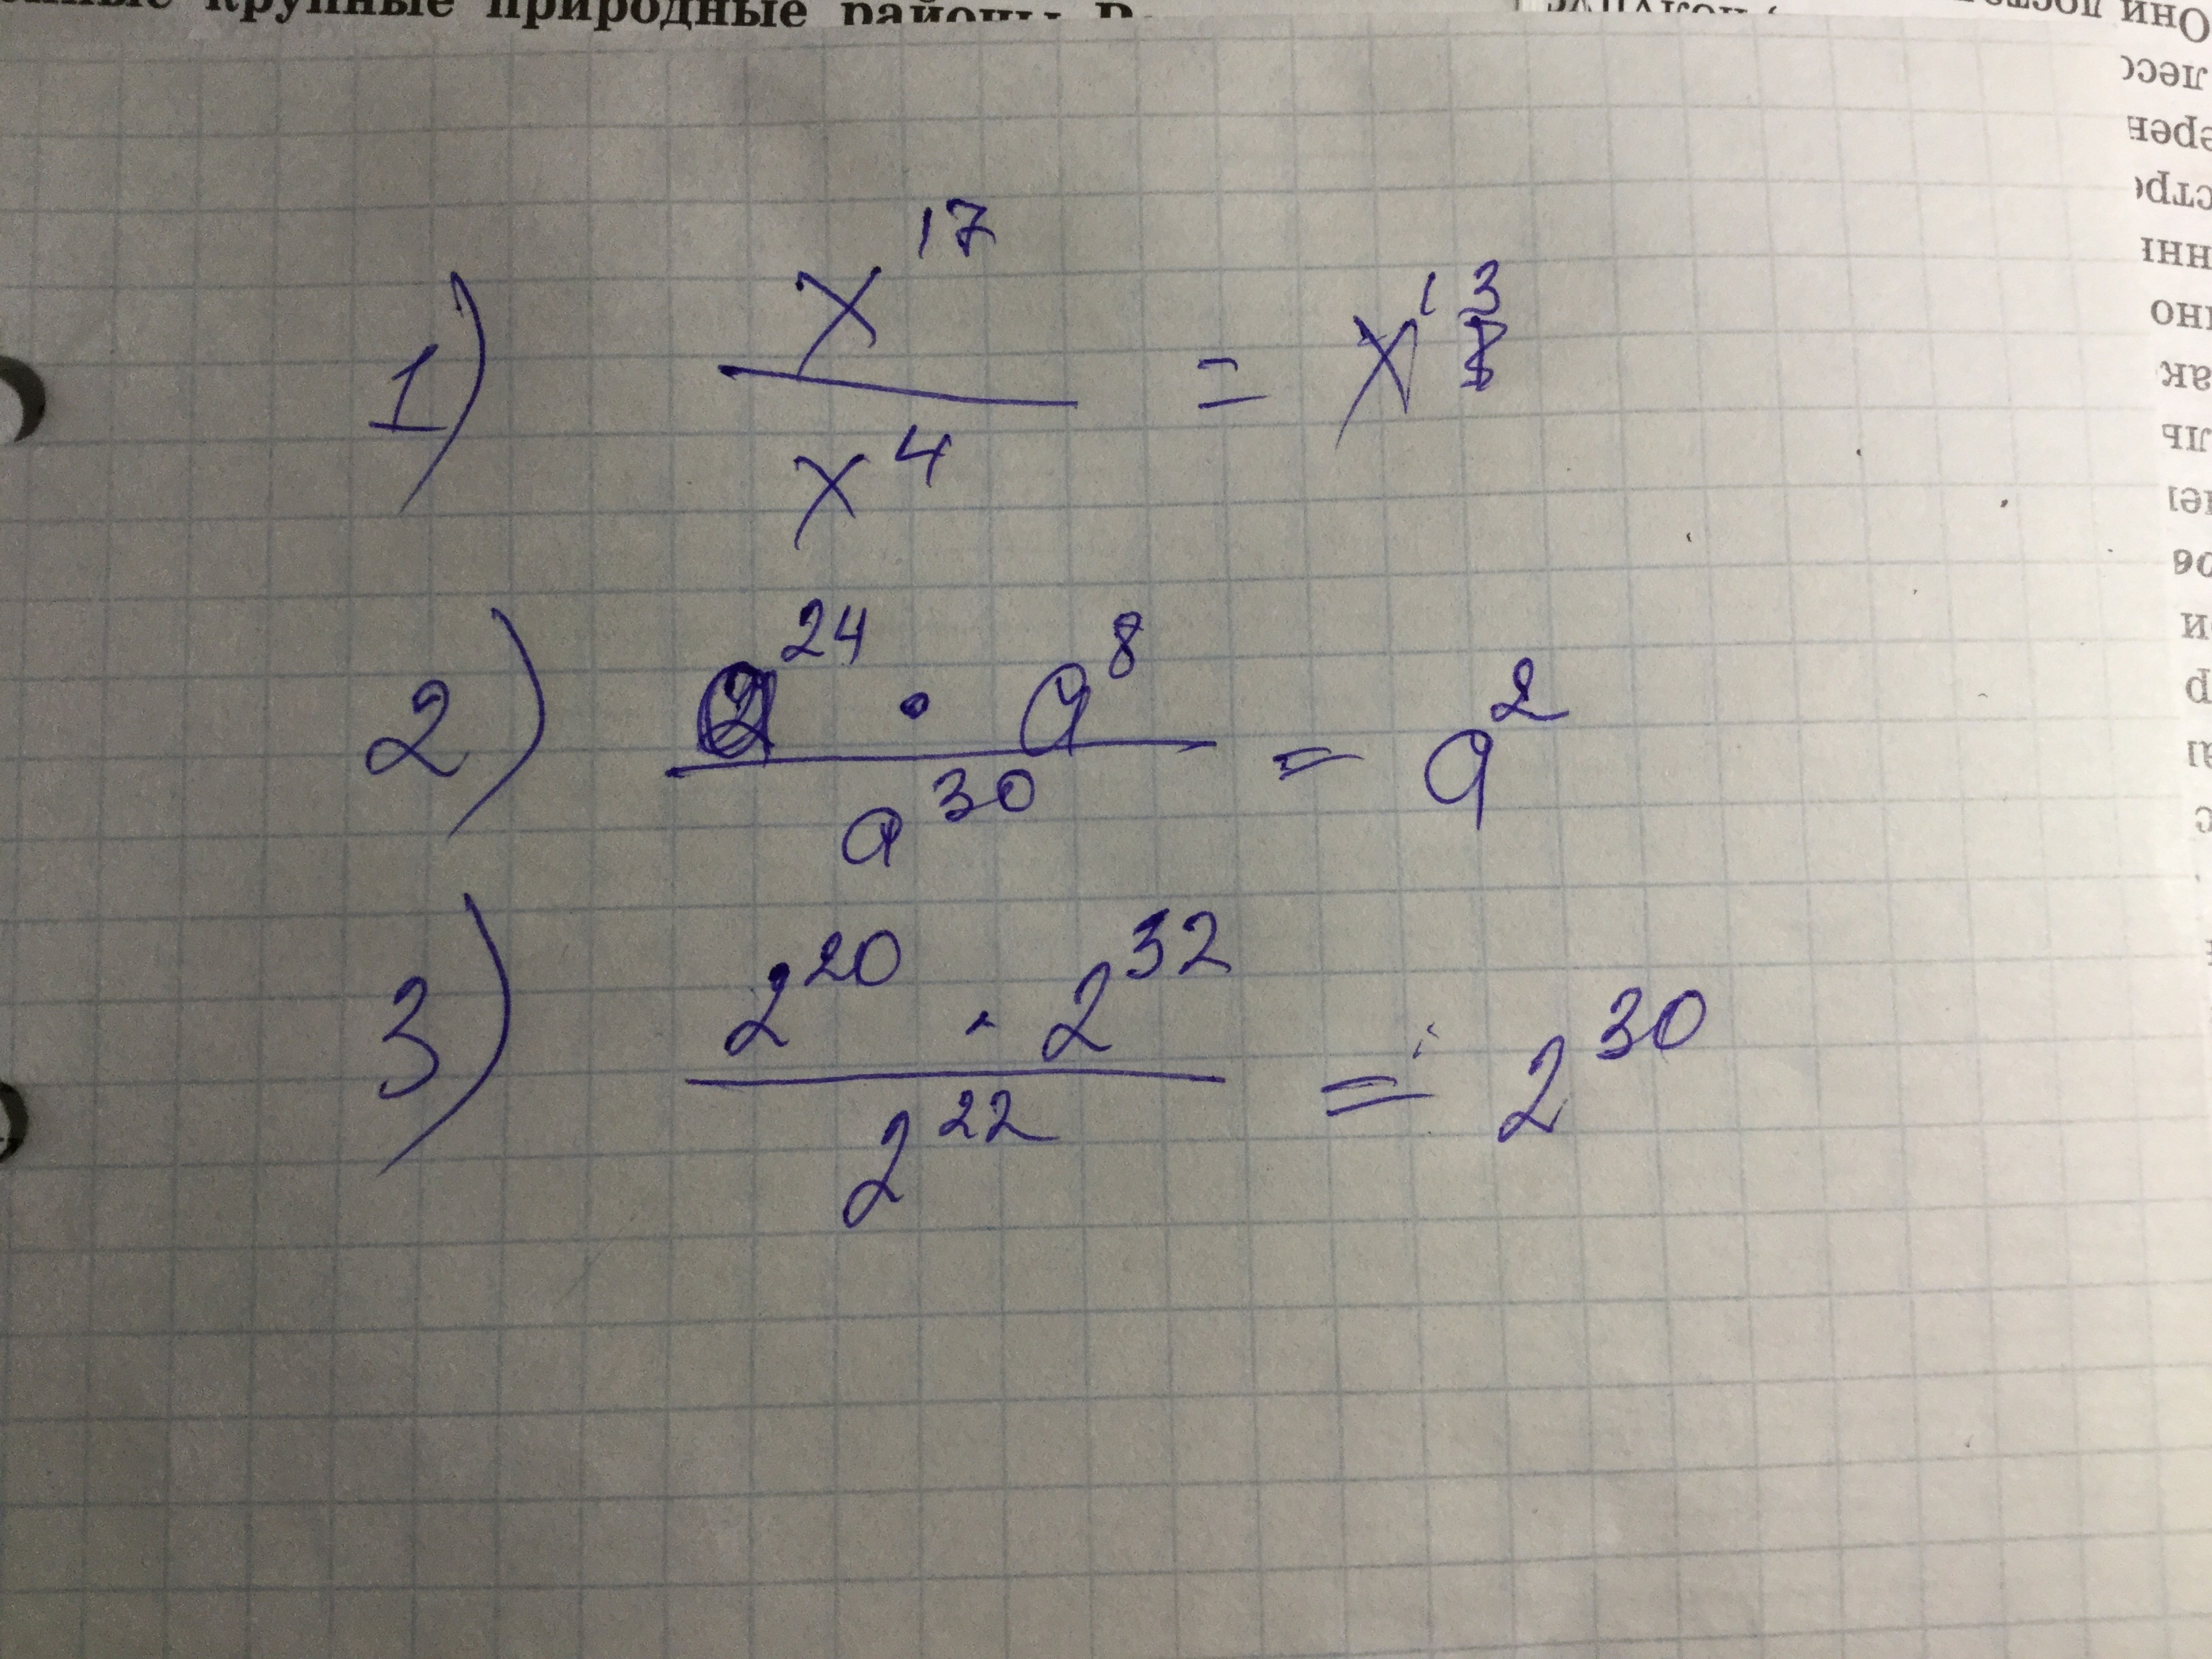 крупные природные районы
1) x^17 / x^4 = x^13
2) a^24 · a^8 / a^30 = a^2
3) 2^20 · 2^32 / 2^22 = 2^30